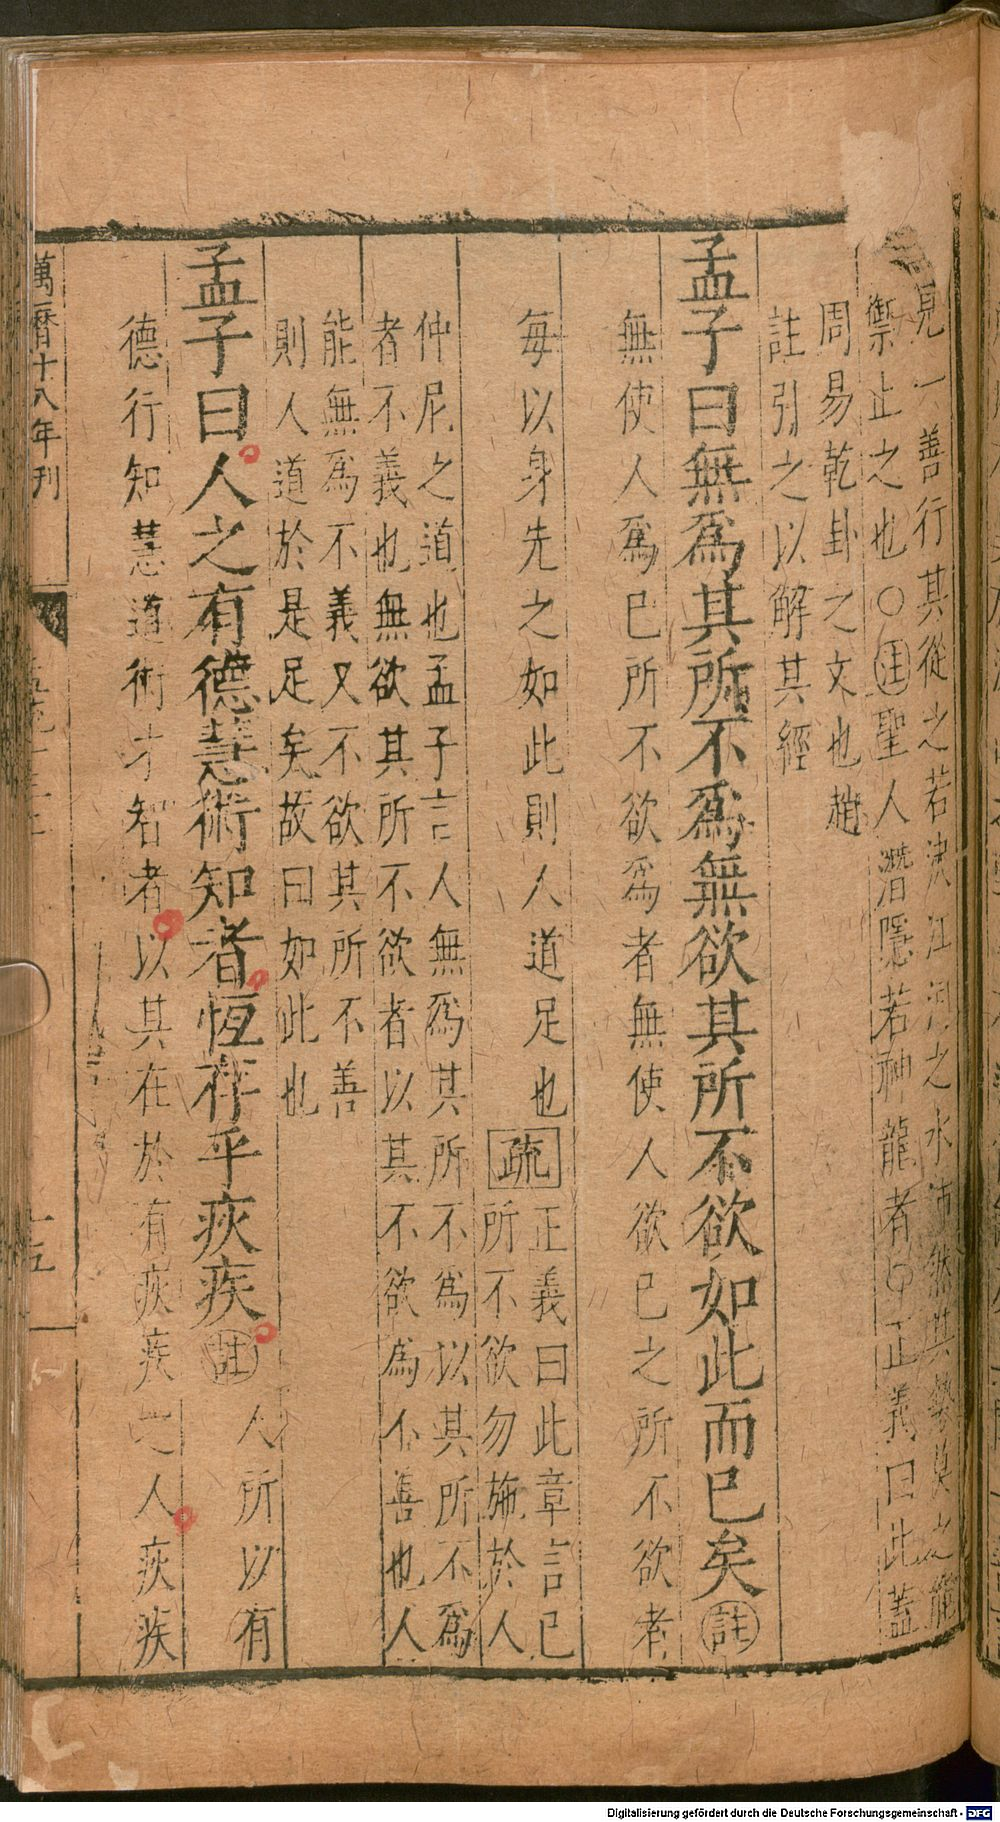 見一善行其從之若決江河之水沛然其勢莫之能
禦止之也〇註聖人潛隱若神龍者〇正義曰此蓋
周易乾卦之文也趙
註引之以解其經
孟子曰無爲其所不爲無欲其所不欲如此而已矣註
無使人爲已所不欲爲者無使人欲已之所不欲者
每以身先之如此則人道足也疏
正義曰此章言已
所不欲勿施於人
仲尼之道也孟子言人無爲其所不爲以其所不爲
者不義也無欲其所不欲者以其不欲爲不善也人
能無爲不義又不欲其所不善
則人道於是足矣故曰如此也
孟子曰人之有德慧術知者恆存乎疢疾註
人所以有
德行知慧道術才智者以其在於有疢疾之人疢疾
萬曆十八年刊
十五
Digitalisierung gefördert durch die Deutsche Forschungsgemeinschaft - DFG